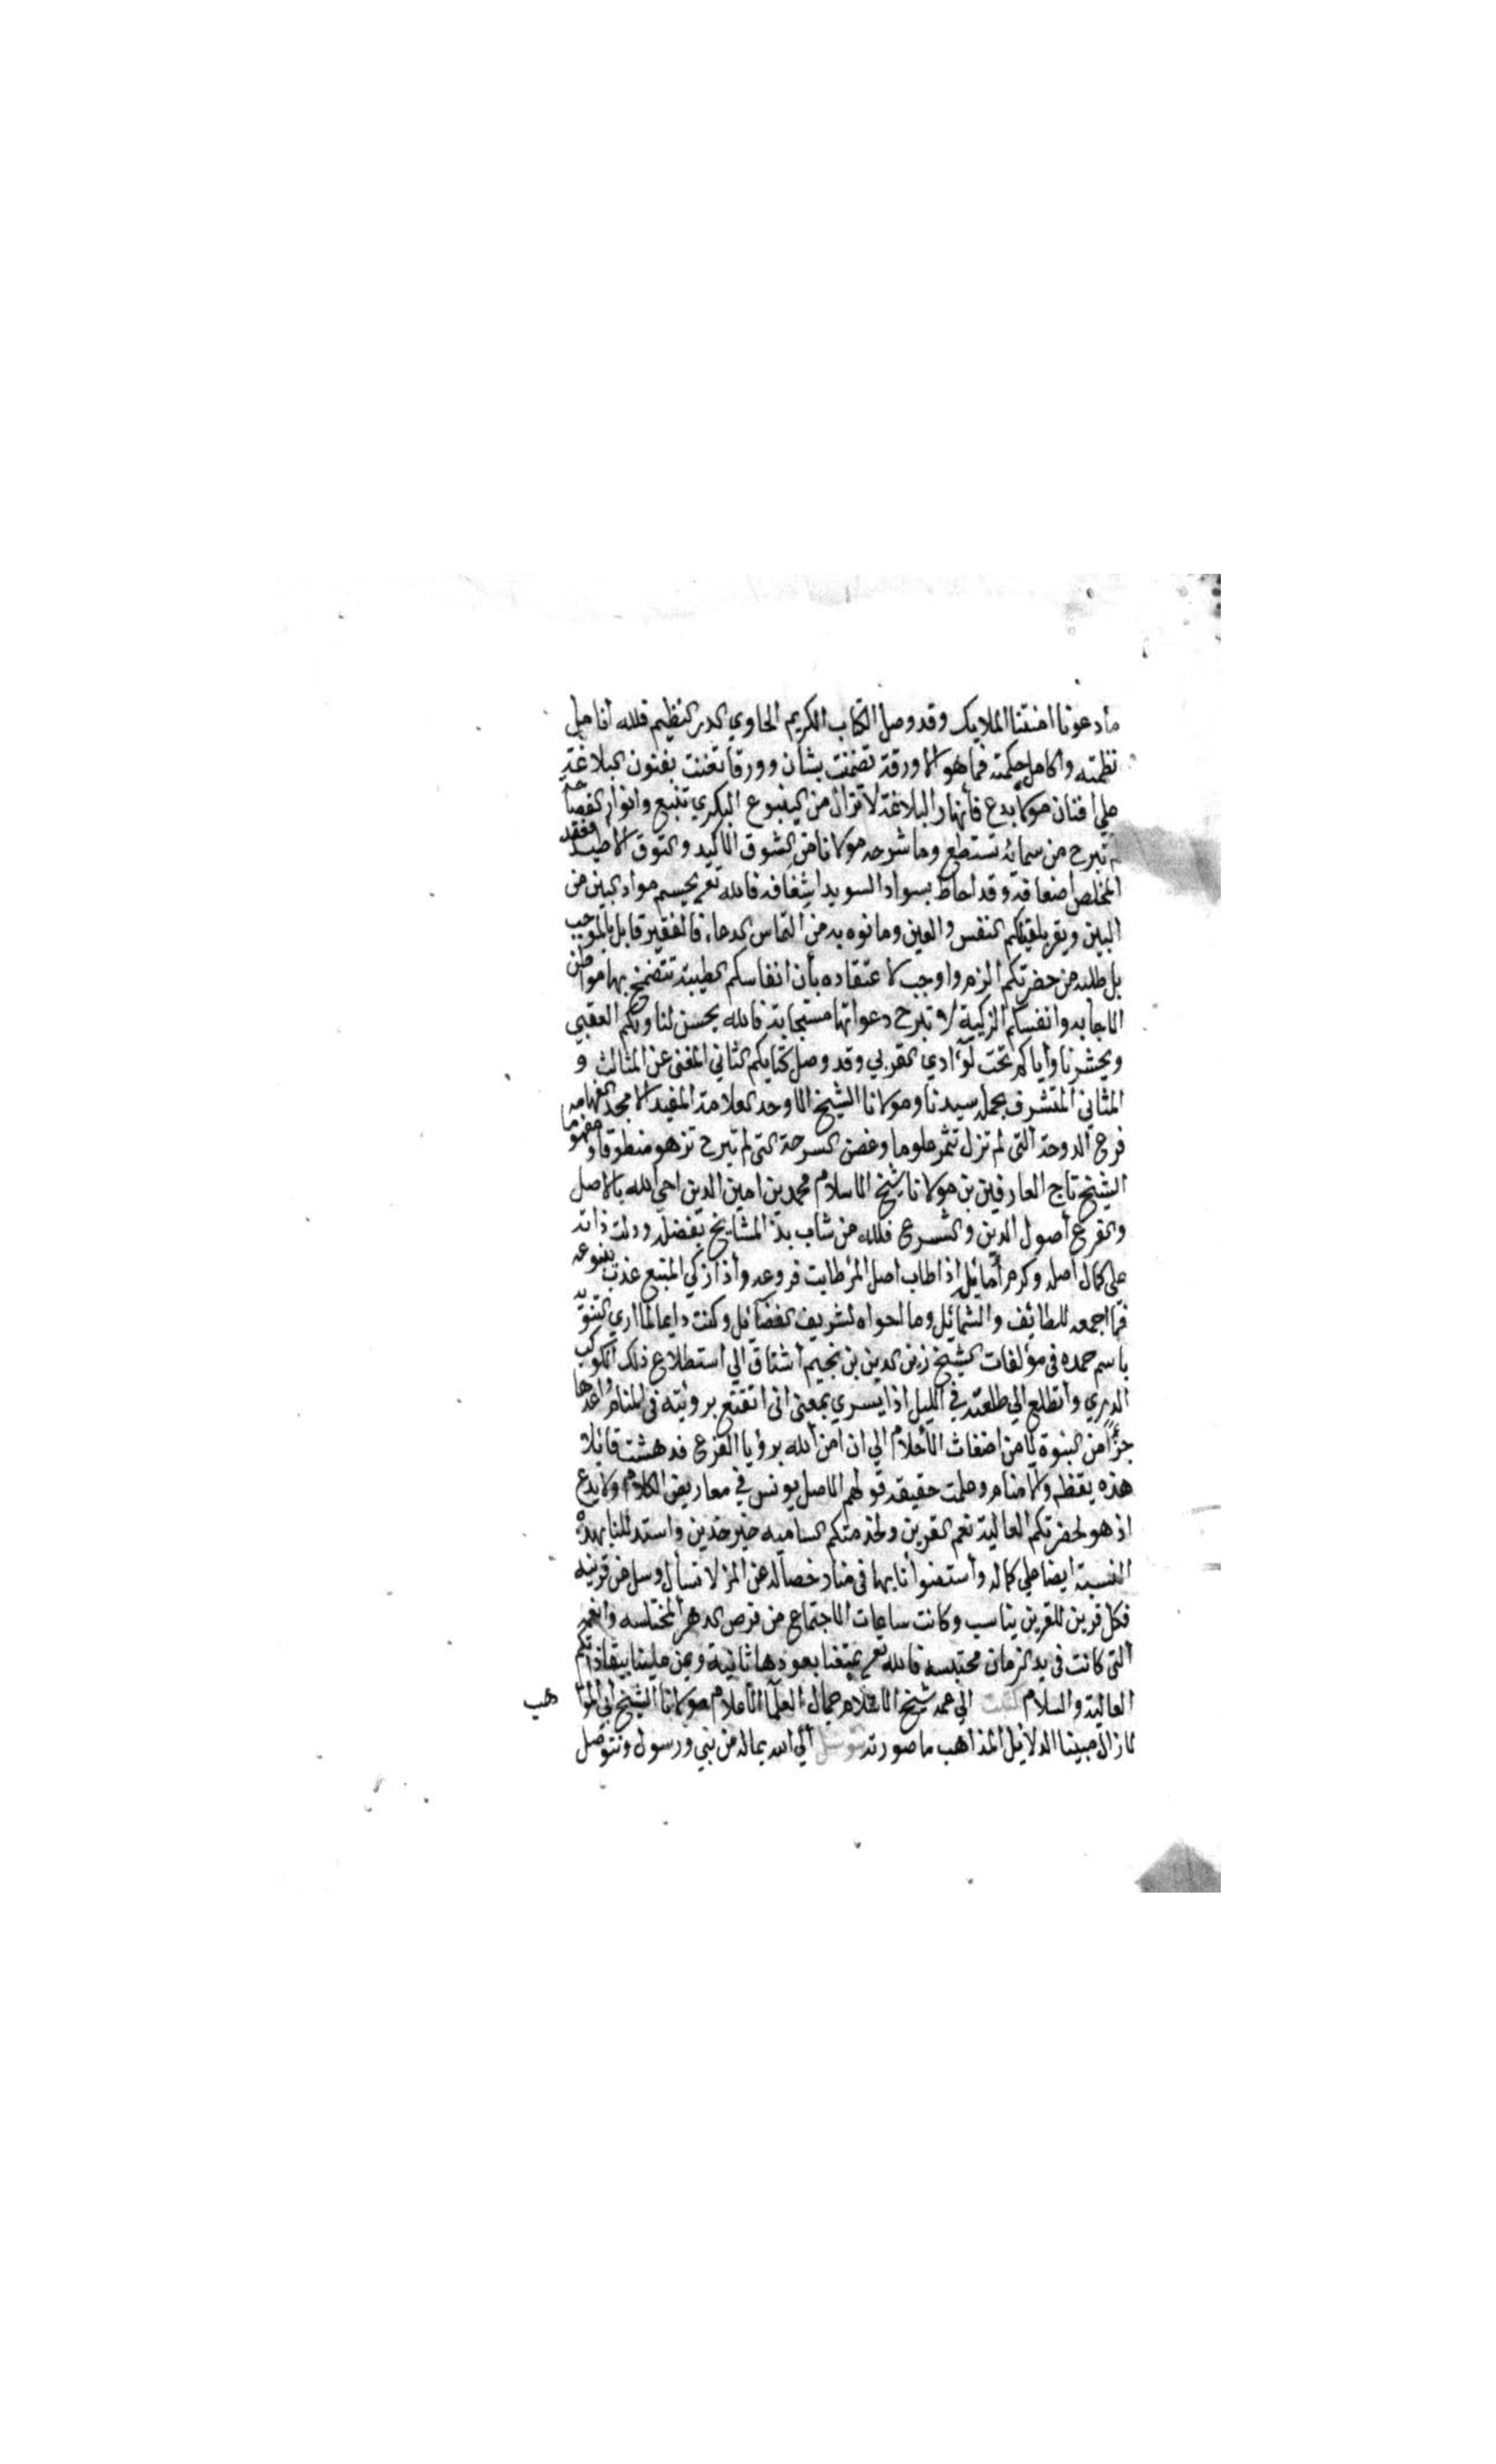 ما دعونا امنتنا الملايك وقد وصل الكتاب الكريم الحاوي الدر النظيم فلله أنامل
نظمته واكامل حكمته فما هو الا ورقة تضمنت بشان وورقا تغننت بفنون البلاغة
علي افنان ولا بدع فأنهار البلاغة لا تزال من الينبوع البكري تنبع وانوار الفصاحة
لم تبرح من سمايه تستطع وما شرحه مولانا من الشوق الاكيد والتوق الاطيد فعند
المخلص أضعافه وقد احاط بسواد السويدا شغافه فالله تعم يحسم مواد البين من
البين ويقر بلقياكم النفس والعين وما نوه به من التماس الدعاء فالفقير قابل بالموجب
بل طلبه من حضرتكم الزم واوجب لاعتقاده بأن انفاسكم الطيبة تتضمخ بها مواطن
الاجابه وانفسكم الزكية لا تبرح دعواتها مستجابة فالله يحسن لنا ولكم العقبي
ويحشرنا واياكم تحت لوآء ادي القربي وقد وصل كتابكم الثاني المغني عن المثالث و
المثاني المتشرف بحمل سيدنا ومولانا الشيخ الاوحد العلامة المفيد الامجد الفهامه
فرع الدوحة التي لم تزل تثمر علوما وغصن السرحة التي لم تبرح تزهو منطوقا ومفهوما
الشيخ تاج العارفين بن مولانا شيخ الاسلام محمد بن امين الدين احي الله بالاصل
والفرع أصول الدين والشرع فلله من شاب بذ المشايخ بفضله ودلت ذاته
علي كمال اصله وكرم اذا طاب اصل المرء طابت فروعه وأذا زكي المنبع عذب ينبوعه
فما اجمعه للطائف والشمائل وما احواه لشريف الفضائل وكنت دايما لما اري التنويه
باسم جده في مؤلفات الشيخ زين الدين بن نجيم أشتاق الي استطلاع ذلك الكوكب
الدري وأتطلع الي طلعته في الليل اذا يسري بمعني اني اتقنع برؤيته في المنام واعدها
جزأ من النبوة لا من اضغاث الأحلام الي ان امن الله برؤيا الفزع فدهشت قائلا
هذه يقظه ولا منام وعلمت حقيقه قولهم الاصل يونس في معاريض الكلام ولا بدع
اذ هو لحضرتكم العالية نعم القرين ولخدمتكم الساميه خير خدين واستد للنا بهذه
النسبة ايضا علي كماله وأستضوأنا بها في منار خصاله عن المرء لا تسأل وسل عن قرينه
فكل قرين للقرين يناسب وكانت ساعات الاجتماع من فرص الدهر المختلسه والنعم
التي كانت في يد الزمان محتبسه فالله تعم يمتعنا بعودها ثانية ويمن علينا ببقا ذاتكم
العالية والسلام كتبت الي عمه شيخ الاسلام جمال العلما الاعلام مولانا الشيخ ابي المواهب
لا زال مبينا الدلائل المذاهب ما صورته نتوسل ألي الله بماله من نبي ورسول ونتوصل